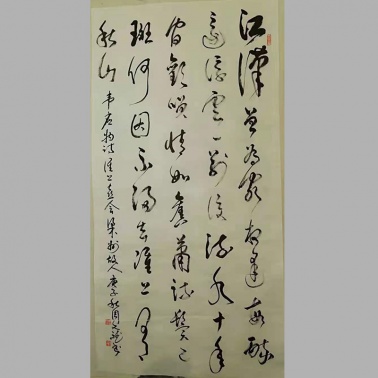 江漢曾為客相逢每醉
還浮雲一別後流水十年
間歡笑情如舊蕭疏鬢已
斑何因不歸去淮上有
秋山
韦应物诗淮上喜会梁州故人庚子秋周文书